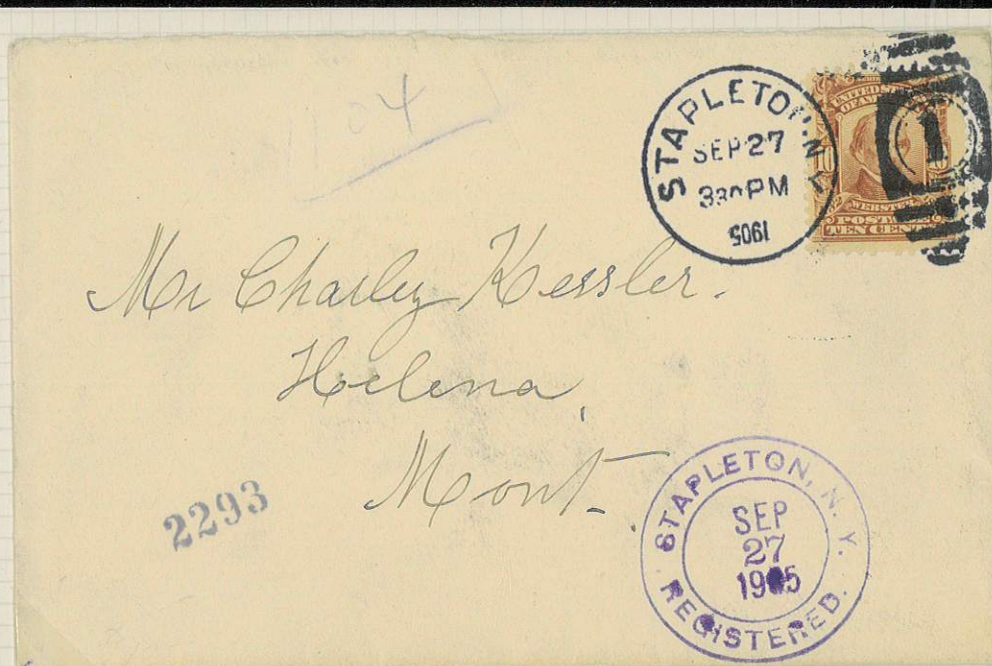 1104
STAPLETON, N.Y.
SEP 27
330 PM
1905
UNITED STATES
OF AMERICA
10
WEBSTER
POSTAGE
TEN CENTS
1
Mr Charley Kessler.
Helena,
Mont.
2293
STAPLETON, N. Y.
SEP
27
1905
REGISTERED.